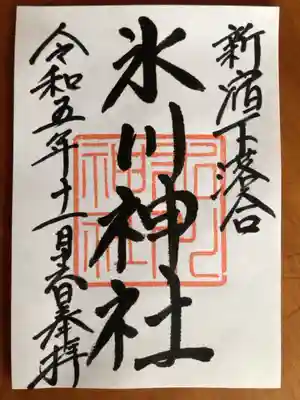 新宿下落合
氷川神社
令和五年十一月六日奉拝
氷川
神社